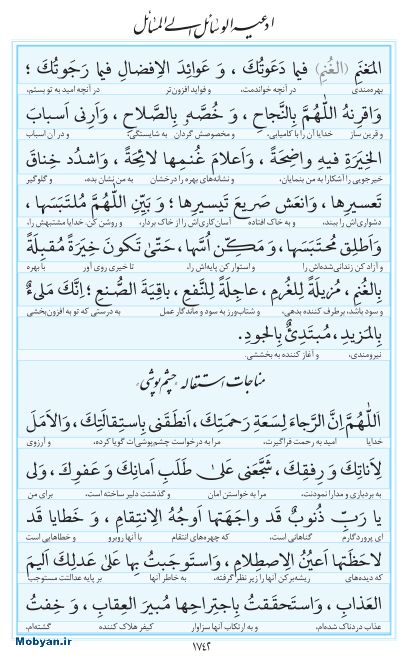 ادعیه الوسائل الی المسائل
المَغنَمِ (الغُنمِ) فیما دَعَوتُكَ ، وَ عَوائِدَ الاِفضالِ فیما رَجَوتُكَ ؛
بهره‌مندی در آنچه خواندمت، و فواید افزون‌تر در آنچه امید به تو بستم،
وَاقرِنهُ اللّٰهُمَّ بِالنَّجاحِ ، وَ خُصَّهُ بِالصَّلاحِ ، وَاَرِنی اَسبابَ
و قرین ساز خدایا آن را با کامیابی، و مخصوصش گردان به شایستگی، و در آن اسباب
الخِیَرَةِ فیهِ واضِحَةً ، وَاَعلامَ غُنمِها لائِحَةً ، وَاشدُد خِناقَ
خیرجویی را آشکارا به من بنمایان، و نشانه‌های بهره را درخشان به من نشان بده، و گلوگیر
تَعسیرِها ، وَانعَش صَریعَ تَیسیرِها ؛ وَ بَیِّنِ اللّٰهُمَّ مُلتَبَسَها ،
دشواری‌اش را ببند، و به خاک افتاده آسان‌کاری‌اش را از خاک بردار، و روشن کن خدایا مشتبهش را،
وَ اَطلِق مُحتَبَسَها ، وَ مَکِّن اُسَّها ، حَتّیٰ تَکونَ خِیَرَةً مُقبِلَةً
و آزاد کن زندانی شده‌اش را و استوار کن پایه‌اش را، تا خیری روی آور با بهره
بِالغُنمِ ، مُزیلَةً لِلغُرمِ ، عاجِلَةً لِلنَّفعِ ، باقِیَةَ الصُّنعِ ؛ اِنَّكَ مَلیءٌ
و سود باشد، برطرف کننده بدهی، و شتاب‌ورز به سود و ماندگار عمل به درستی که تو به افزون‌بخشی
بِالمَزیدِ ، مُبتَدِئٌ بِالجودِ.
نیرومندی، و آغاز کننده به بخششی.
مناجات استقاله «چشم پوشی»
اَللّٰهُمَّ اِنَّ الرَّجاءَ لِسَعَةِ رَحمَتِكَ ، اَنطَقَنی بِاستِقالَتِكَ ، وَالاَمَلَ
خدایا امید به رحمت فراگیرت، مرا به درخواست چشم‌پوشی‌ات گویا کرده، و آرزوی
لِاَناتِكَ وَ رِفقِكَ ، شَجَّعَنی عَلیٰ طَلَبِ اَمانِكَ وَ عَفوِكَ ، وَلی
به بردباری و مدارا نمودنت، مرا به خواستن امان و گذشتت دلیر ساخته است، برای من
یا رَبِّ ذُنوبٌ قَد واجَهَتها اَوجُهُ الاِنتِقامِ ، وَ خَطایا قَد
ای پروردگارم گناهانی است، که چهره‌های انتقام با آنها روبرو و خطاهایی است
لاحَظَتها اَعیُنُ الاِصطِلامِ ، وَاستَوجَبتُ بِها عَلیٰ عَدلِكَ اَلیمَ
که دیده‌های ریشه‌برکن آنها را زیر نظر گرفته، به خاطر آنها بر پایه عدالتت مستوجب
العَذابِ ، وَاستَحقَقتُ بِاجتِراحِها مُبیرَ العِقابِ ، وَ خِفتُ
عذاب دردناک شده‌ام، و به ارتکاب آنها سزاوار کیفر هلاک کننده گشته‌ام،
۱۷۴۲
Mobyan.ir